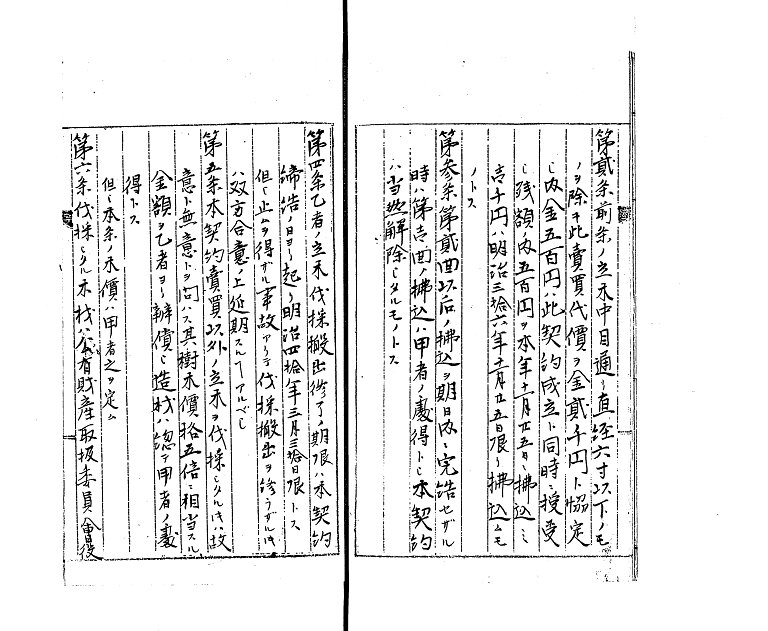 第貳条前条ノ立木中目通シ直経六寸以下ノモ
ノヲ除キ此賣買代價ヲ金貳千円ト協定
シ内金五百円ハ此契約成立ト同時ニ授受
シ残額ノ内五百円ヲ本年十一月廿五日ニ拂込ミ
壱千円ハ明治三拾六年十一月廿五日限リ拂込ムモ
ノトス
第参条第貳回以后ノ拂込ヲ期日内ニ完済セザル
時ハ第壱回ノ拂込ハ甲者ノ處得トシ本契約
ハ当然解除シタルモノトス
第四条乙者ノ立木伐採搬出終了ノ期限ハ本契約
締結ノ日ヨリ起リ明治四拾年三月三拾日限トス
但シ止ムヲ得ザル事故アリテ伐採搬出ヲ終ラザル時
ハ双方合意ノ上延期スルコトアルベシ
第五条本契約賣買以外ノ立木ヲ伐採シタル時ハ故
意ト無意トヲ問ハス其樹木價拾五倍ニ相当スル
金額ヲ乙者ヨリ辨償シ造材ハ総テ甲者ノ處
得トス
但シ本条ノ木價ハ甲者之ヲ定ム
第六条伐採シタル木材ハ公有財産取扱委員會役